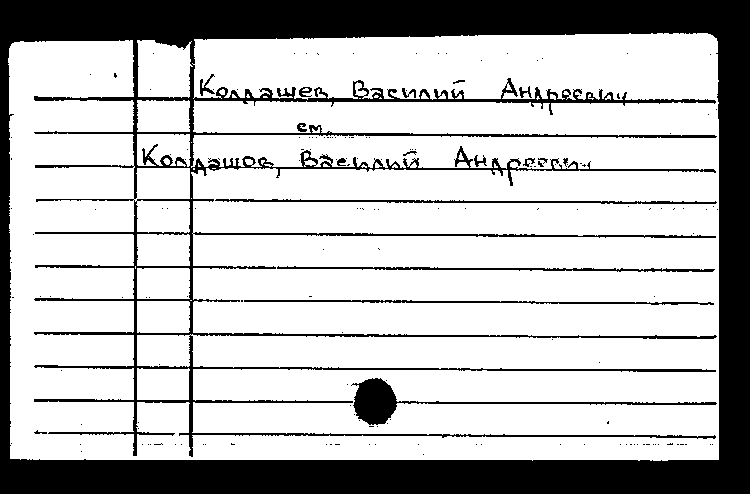 Колдашев, Василий Андреевич
см.
Колдашов, Василий Андреевич